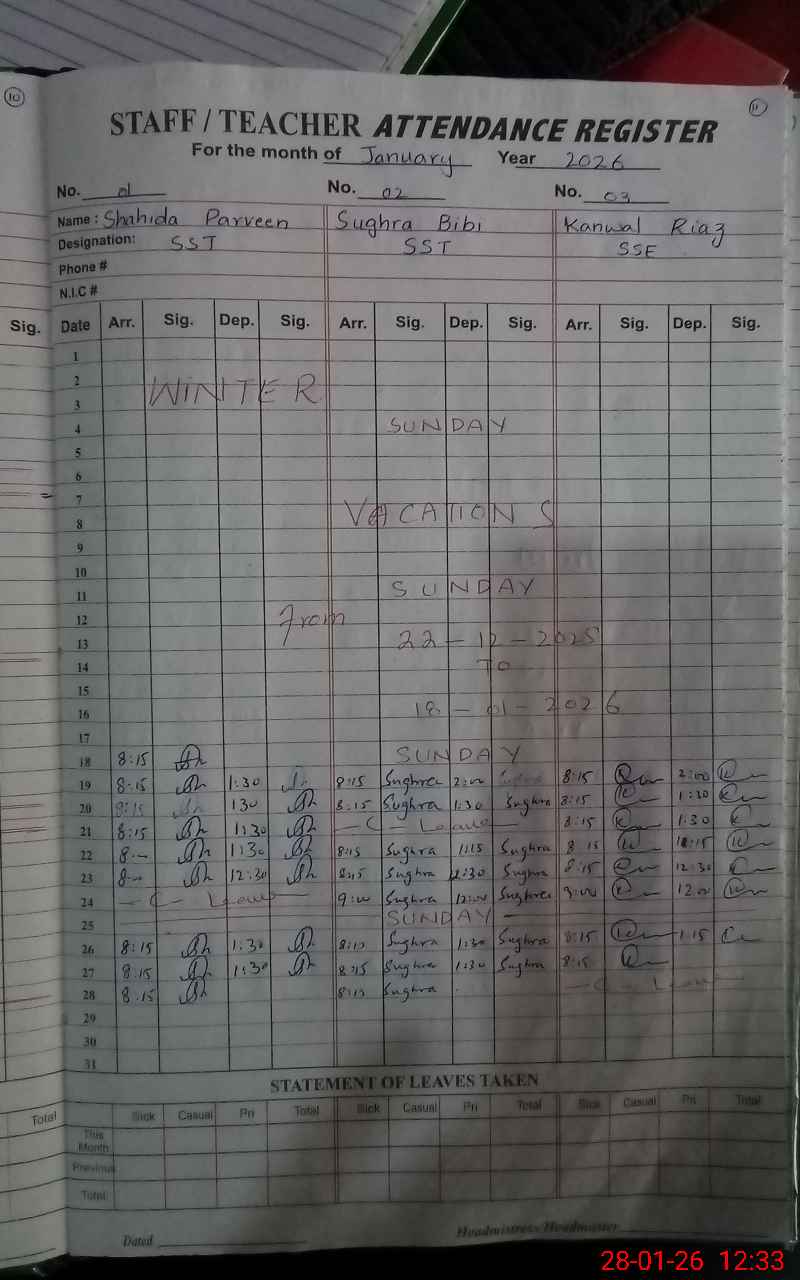 10
11
STAFF / TEACHER ATTENDANCE REGISTER
For the month of January Year 2026
No. 01 No. 02 No. 03
Name : Shahida Parveen Sughra Bibi Kanwal Riaz
Designation: SST SST SSE
Phone #
N.I.C #
Sig. Date Arr. Sig. Dep. Sig. Arr. Sig. Dep. Sig. Arr. Sig. Dep. Sig.
1
2
WINTER
3
4 SUNDAY
5
6
7
8 VACATIONS
9
10
11 SUNDAY
12 From
13 22-12-2025
14 TO
15
16 18-01-2026
17
18 8:15 SUNDAY
19 8:15 1:30 8:15 Sughra 2:00 8:15 2:00
20 8:15 130 8:15 Sughra 1:30 Sughra 8:15 1:30
21 8:15 1:30 -C- Leave- 8:15 1:30
22 8-- 1:30 8:15 Sughra 1:15 Sughra 8 15
23 8-- 12:30 8:15 Sughra 12:30 Sughra 8:15 12:30
24 -C- Leave- 9:00 Sughra 12:00 Sughra 9:00 12.00
25 SUNDAY
26 8:15 1:30 8:15 Sughra 1:30 Sughra 8:15 1:15
27 8:15 1:30 8:15 Sughra 1:30 Sughra 8:15
28 8:15 8:15 Sughra -C- Leave-
29
30
31
STATEMENT OF LEAVES TAKEN
Total Sick Casual Pri Total Sick Casual Pri Total Sick Casual Pri Total
This Month
Previous
Total
Dated Headmistress/Headmaster
28-01-26 12:33